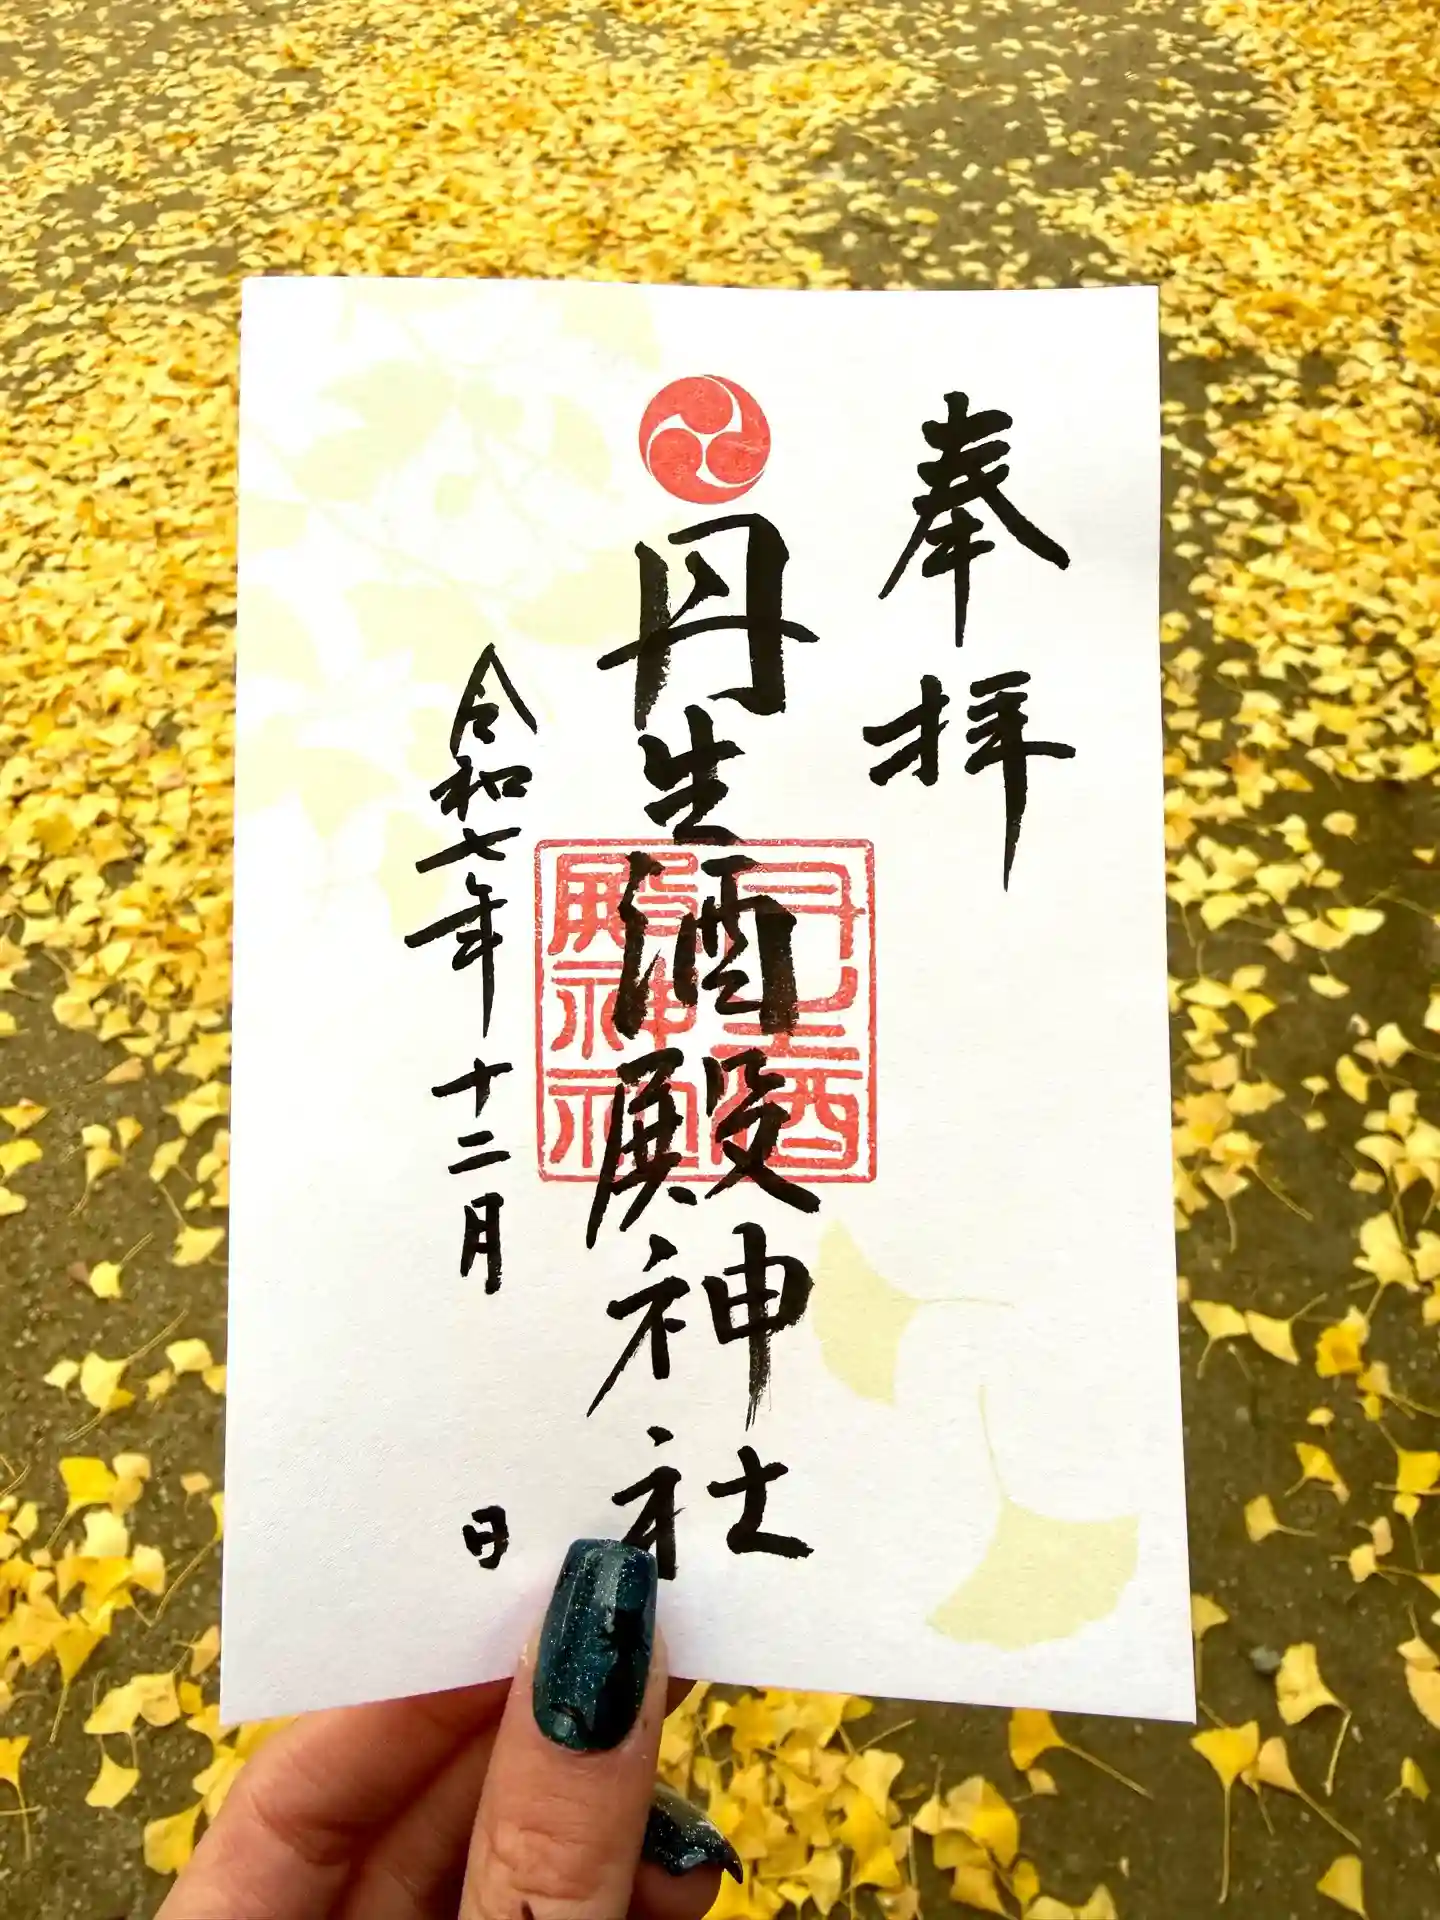 奉拝
丹生酒殿神社
丹生酒殿神社
令和七年十二月 日